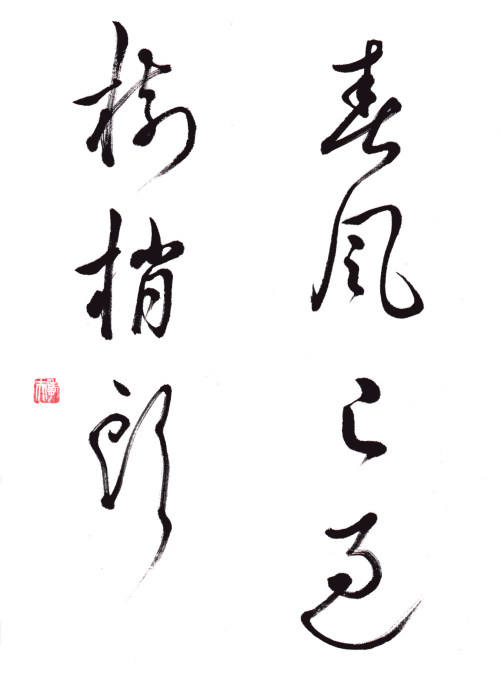 春風已過
樹梢頭